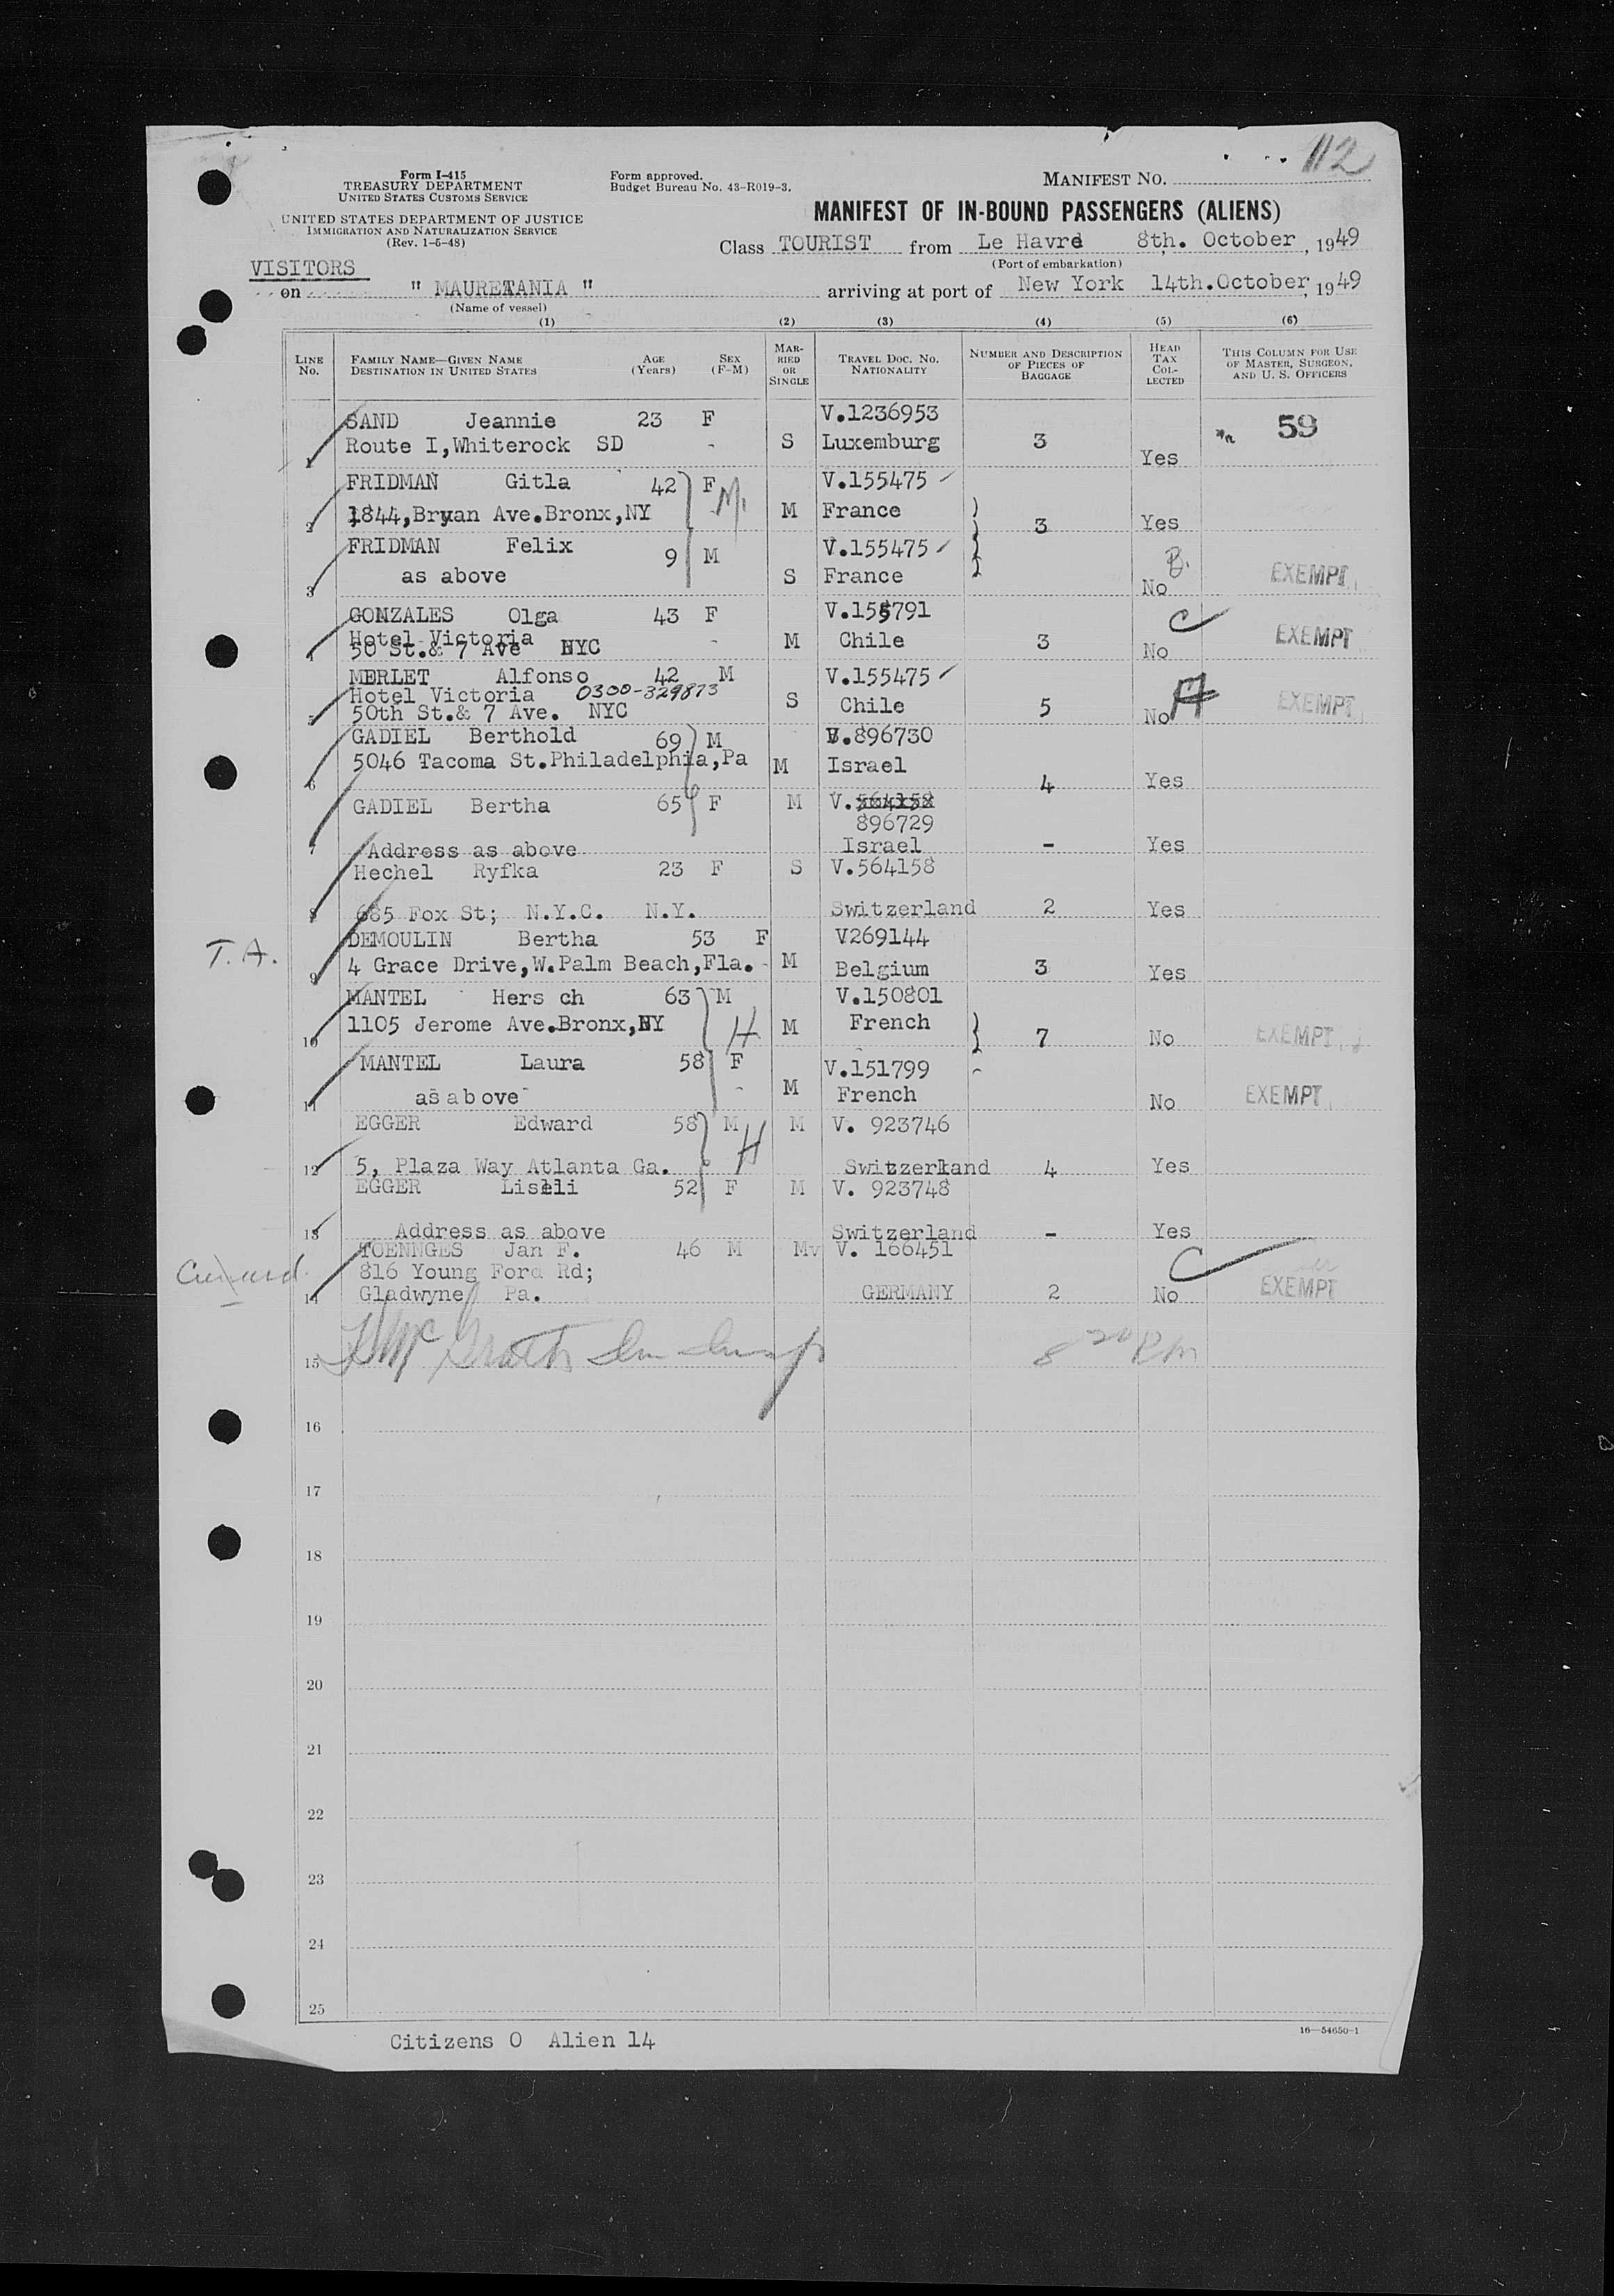 112
Form I-415
TREASURY DEPARTMENT
UNITED STATES CUSTOMS SERVICE
UNITED STATES DEPARTMENT OF JUSTICE
IMMIGRATION AND NATURALIZATION SERVICE
(Rev. 1-5-48)
Form approved.
Budget Bureau No. 43-R019-3.
MANIFEST NO.
MANIFEST OF IN-BOUND PASSENGERS (ALIENS)
Class TOURIST from Le Havre 8th. October, 1949
(Port of embarkation)
VISITORS
on " MAURETANIA " arriving at port of New York 14th.October, 1949
(Name of vessel)
(1) (2) (3) (4) (5) (6)
LINE No. FAMILY NAME—GIVEN NAME DESTINATION IN UNITED STATES AGE (Years) SEX (F-M) MARRIED OR SINGLE TRAVEL DOC. NO. NATIONALITY NUMBER AND DESCRIPTION OF PIECES OF BAGGAGE HEAD TAX COLLECTED THIS COLUMN FOR USE OF MASTER, SURGEON, AND U. S. OFFICERS
SAND Jeannie 23 F V.1236953 59
1 Route I,Whiterock SD S Luxemburg 3 Yes
FRIDMAN Gitla 42 F V.155475
2 1844,Bryan Ave.Bronx,NY M France 3 Yes
FRIDMAN Felix 9 M V.155475
3 as above S France No EXEMPT
GONZALES Olga 43 F V.155791 C
Hotel Victoria
4 50 St.& 7 Ave NYC M Chile 3 No EXEMPT
MERLET Alfonso 42 M V.155475
Hotel Victoria 0300-329873
5 50th St.& 7 Ave. NYC S Chile 5 No EXEMPT
GADIEL Berthold 69 M V.896730
6 5046 Tacoma St.Philadelphia,Pa M Israel 4 Yes
GADIEL Bertha 65 F M V.564158
896729
7 Address as above Israel - Yes
Hechel Ryfka 23 F S V.564158
8 685 Fox St; N.Y.C. N.Y. Switzerland 2 Yes
T.A. DEMOULIN Bertha 53 F V269144
9 4 Grace Drive,W.Palm Beach,Fla. M Belgium 3 Yes
MANTEL Hers ch 63 M V.150801
10 1105 Jerome Ave.Bronx,NY H M French 7 No EXEMPT
MANTEL Laura 58 F V.151799
11 as above M French No EXEMPT
EGGER Edward 58 M M V. 923746
12 5, Plaza Way Atlanta Ga. H Switzerland 4 Yes
EGGER Liseli 52 F M V. 923748
13 Address as above Switzerland - Yes
TOENNGES Jan F. 46 M M V. 166451 C
816 Young Ford Rd;
14 Gladwyne Pa. GERMANY 2 No EXEMPT
15 8 20 PM
16
17
18
19
20
21
22
23
24
25
Citizens 0 Alien 14
16—54650-1